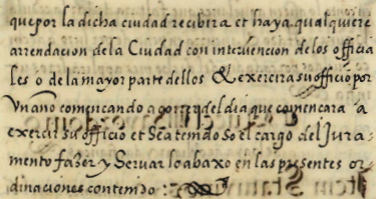 que por la dicha ciudad recibira et haya qualquiere
arrendacion de la Ciudad con interuencion de los officia
les o de la mayor parte dellos & exercira su officio por
vn ano començando a correr del dia que començara a
exercir su officio et Sea tenido so el cargo del Jura-
mento fazer y Seruar lo abaxo en las presentes or
dinaciones contenido :~